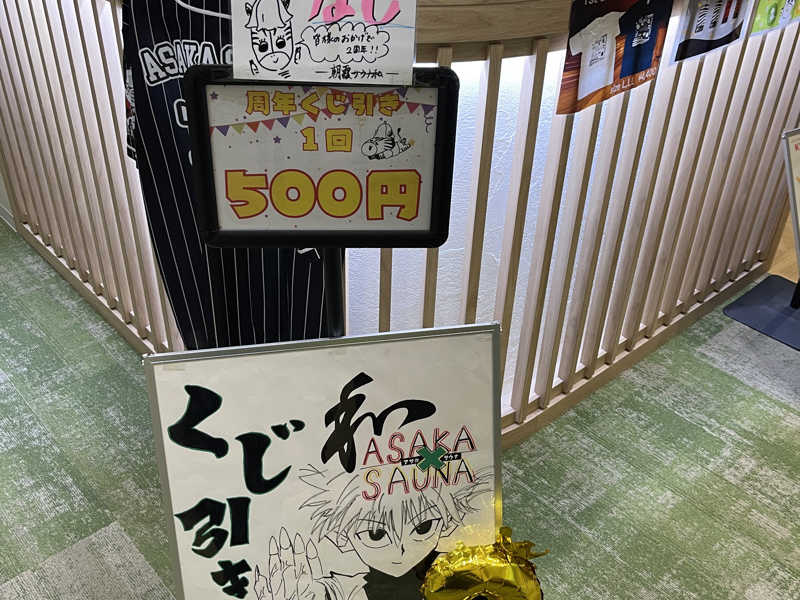 なし
皆様のおかげで
2周年!!
朝霞サウナ和
ASAKA
周年くじ引き
1回
500円
size L,LL ¥4,400
くじ引き
和
ASAKA
アサカ×サウナ
SAUNA